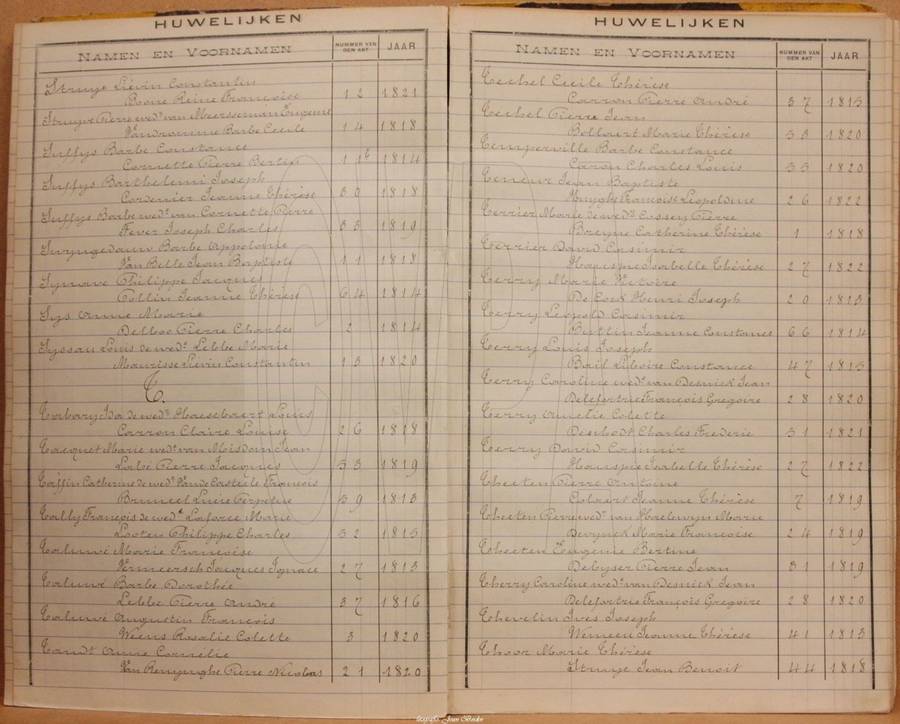 HUWELIJKEN
NAMEN EN VOORNAMEN NUMMER VAN DEN AKT JAAR
Struye Liévin Constantin
Boone Reine Françoise 12 1821
Struye Pierre wedr van Meersseman Eugenie
Vandromme Barbe Cecile 14 1818
Suffys Barbe Constance
Cornette Pierre Bertin 11 1814
Suffys Barthelemi Joseph
Cordenier Jeanne Thérèse 39 1818
Suffys Barbe wede van Cornette Pierre
Fever Joseph Charles 33 1819
Swyngedauw Barbe Appolonie
Van Bille Jean Baptiste 11 1818
Synave Philippe Jacques
Collin Jeanne Thérèse 64 1814
Sys Anne Marie
Delboo Pierre Charles 2 1814
Syssau Louis de wede Lebbe Marie
Maurisse Liévin Constantin 13 1820
T.
Tabary Ida de wede Haesebaert Louis
Carron Claire Louise 26 1818
Tacquet Marie wede van Moisdom Jean
Lobbe Pierre Jacques 33 1819
Taffin Catherine de wede Vande Casteele François
Bruneel Lucie Perpétue 39 1813
Tally François de wede Laforce Marie
Looten Philippe Charles 32 1815
Taluwé Marie Françoise
Vermeersch Jacques Ignace 27 1813
Taluwé Barbe Dorothée
Lebbe Pierre André 37 1816
Taluwé Augustin François
Weens Rosalie Colette 3 1820
Tandt Anne Cornélie
Van Renynghe Pierre Nicolas 21 1820
HUWELIJKEN
NAMEN EN VOORNAMEN NUMMER VAN DEN AKT JAAR
Techel Cecile Thérèse
Carron Pierre André 37 1815
Techel Pierre Jean
Bollaert Marie Thérèse 33 1820
Temperville Barbe Constance
Caron Charles Louis 33 1820
Teneur Jean Baptiste
Huyghe Françoise Léopoldine 26 1822
Terrier Marie de wede Cossey Pierre
Breyne Catherine Thérèse 1 1818
Terrier David Casimir
Hauspie Isabelle Thérèse 27 1822
Terry Marie Victoire
De Cock Henri Joseph 20 1813
Terry Léopold Casimir
Buttin Jeanne Constance 66 1814
Terry Louis Joseph
Bail Liboire Constance 47 1815
Terry Caroline wede van Desnick Jean
Delefortrie François Gregoire 28 1820
Terry Amelie Colette
Deshodt Charles Frederic 31 1821
Terry David Casimir
Hauspie Isabelle Thérèse 27 1822
Theeten Pierre Antoine
Colaert Jeanne Thérèse 7 1819
Theeten Pierre wedr van Haelewyn Marie
Devynck Marie Françoise 24 1819
Theeten Eugenie Bertine
Debyser Pierre Jean 31 1819
Therry Caroline wede van Desnick Jean
Delefortrie François Gregoire 28 1820
Thevelin Ives Joseph
Wemeen Jeanne Thérèse 41 1813
Thoor Marie Thérèse
Struye Jean Benoit 44 1818